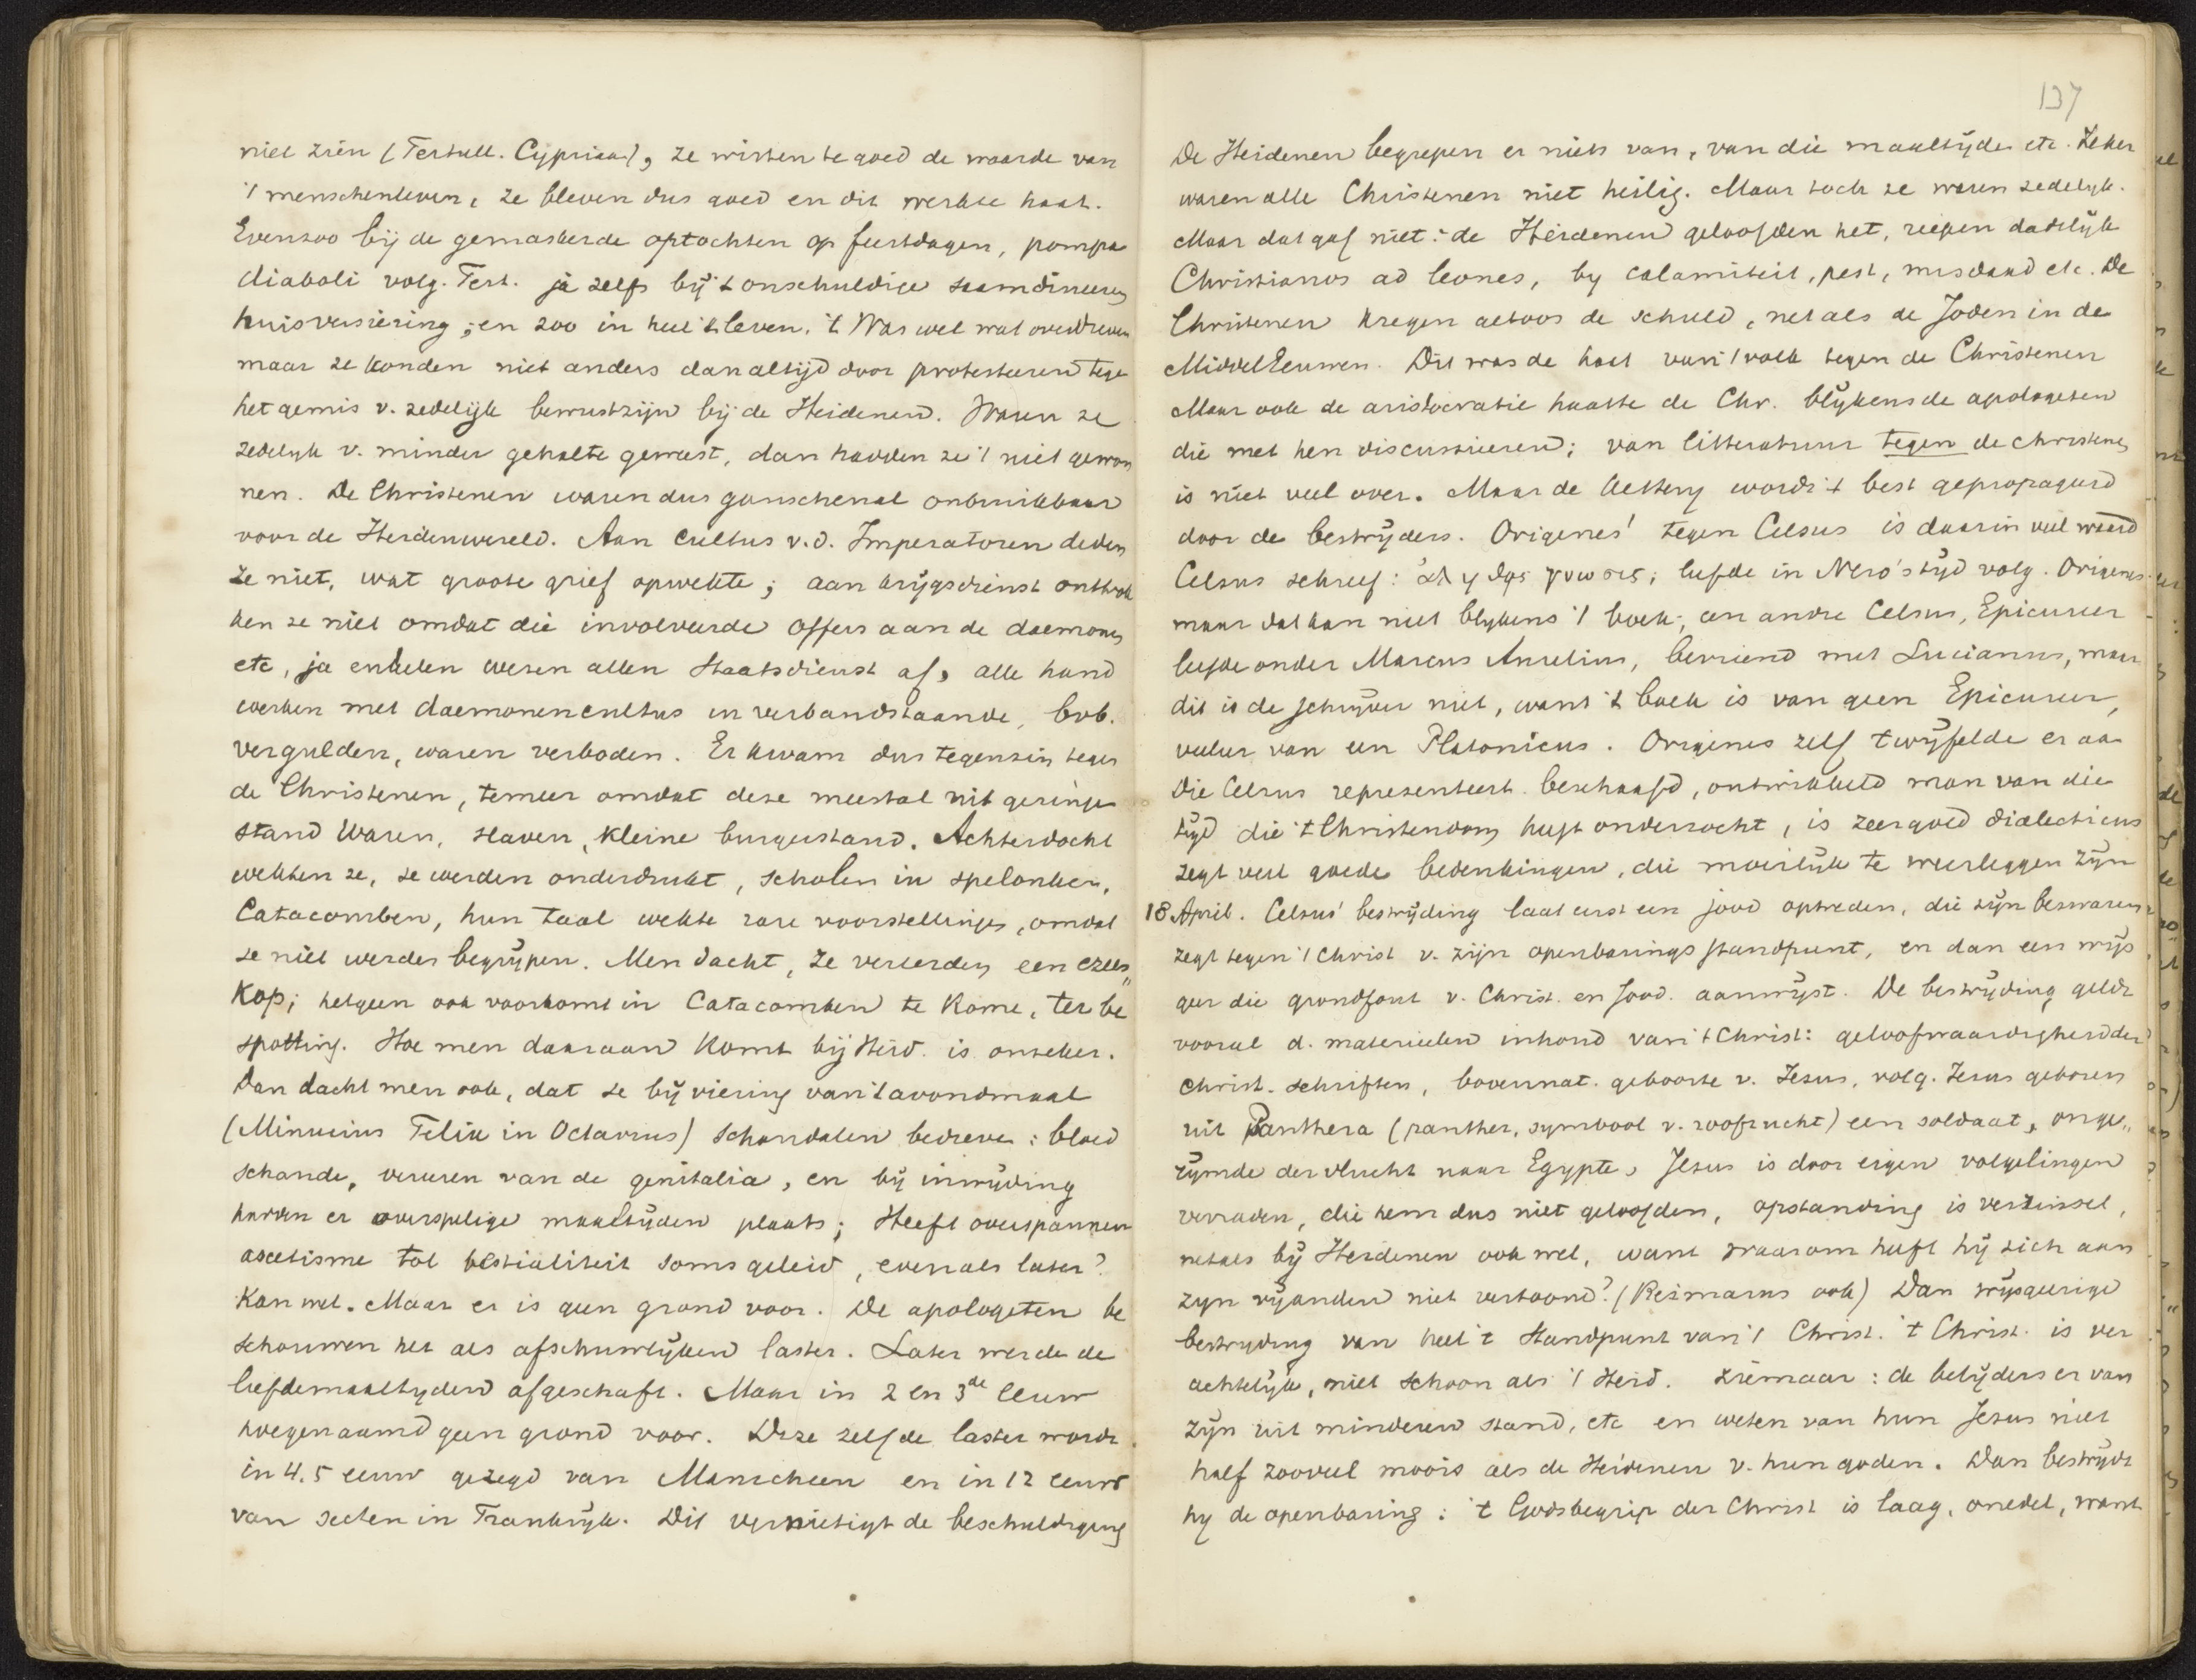 niet zien (Tertull. Cyprian), ze wisten te goed de waarde van
't menschenleven, ze bleven dus goed en dit werkte haat.
Evenzoo bij de gemaskerde optochten op feestdagen, pompa
diaboli volg. Tert. ja zelfs bij 't onschuldige saamdineeren
huisversiering; en zoo in heel 't leven. 't Was wel wat overdreven
maar ze konden niet anders dan altijd door protesteeren tege
het gemis v. zedelijk bewustzijn bij de Heidenen. Waren ze
zedelyk v. minder gehalte geweest, dan hadden ze 't niet gewon
nen. De Christenen waren dus ganschenal onbruikbaar
voor de Heidenwereld. Aan Cultus v.d. Imperatoren deden
ze niet, wat groote grief opwekte; aan krijgsdienst onttrok
ken ze niet omdat die involveerde offers aan de daemones
etc, ja enkelen wezen allen Staatsdienst af, alle hand
werken met daemonencultus in verbandstaande, bvb.
vergulden, waren verboden. Er kwam dus tegenzin tegen
de Christenen, temeer omdat deze meestal uit geringe
stand waren, slaven, kleine burgerstand. Achterdocht
wekten ze, ze werden onderdrukt, scholen in spelonken,
Catacomben, hun taal wekte rare voorstellingen, omdat
ze niet werden begrijpen. Men dacht, ze vereerden een ezels
kop; hetgeen ook voorkomt in Catacomben te Rome, ter be
spotting. Hoe men daaraan komt bij Heid. is onzeker.
Dan dacht men ook, dat ze bij viering van 't avondmaal
(Minucius Felix in Octavius) schandalen bedreven: bloed
schande, vereeren van de genitalia, en bij inwijding
hadden er overspelige maaltijden plaats; Heeft overspannen
ascetisme tot bestialiteit soms geleid, evenals later?
Kan wel. Maar er is geen grond voor. De apologeten be
schouwen het als afschuwelijken laster. Later werde de
liefdemaaltyden afgeschaft. Maar in 2 en 3de eeuw
hoegenaamd geen grond voor. Deze zelfde laster wordt
in 4.5 eeuw gezegd van Manicheen en in 12 eeuw
van secten in Frankrijk. Dit vernietigt de beschuldiging
137
De Heidenen begrepen er niets van, van die maaltijden etc. Zeker
waren alle Christenen niet heilig. Maar toch ze waren zedelyk.
Maar dat gaf niet: de Heidenen geloofden het, riepen dadelijk
Christianos ad leones, by calamiteit, pest, misdaad etc. De
Christenen kregen altoos de schuld, net als de Joden in de
MiddelEeuwen. Dit was de haat van 't volk tegen de Christenen
Maar ook de aristocratie haatte de Chr. blijkens de apologeten
die met hen discussieeren; van litteratuur tegen de christenen
is niet veel over. Maar de ketterij wordt 't best gepropageerd
door de bestrijders. Origenes' tegen Celsus is daarin veel waard
Celsus schreef: leefde in Nero's tijd volg. Origenes
maar dat kan niet blykens 't boek; een andre Celsus, Epicureer
leefde onder Marcus Aurelius, bevriend met Lucianus, maar
dit is de schrijver niet, want 't boek is van geen Epicureer,
veeleer van een Platonicus. Origenes zelf twijfelde er aan
Die Celsus representeert beschaafd, ontwikkeld man van die
tijd die 't Christendom heeft onderzocht, is zeer goed dialecticus
zegt veel goede bedenkingen, die moeilijk te weerleggen zijn
18 April. Celsus' bestrijding laat eerst een jood optreden, die zijn bezwaren
zegt tegen 't Christ v. zijn openbarings standpunt, en dan een wijs
geer die grondfout v. Christ. en Jood. aanwijst. De bestrijding geldt
vooral d. materieelen inhoud van 't Christ: geloofwaardigheid der
Christ. schriften, bovennat. geboorte v. Jezus, volg. Jezus geboren
uit Panthera (panther, symbool v. roofzucht) een soldaat, onge„
rijmde der vlucht naar Egypte, Jezus is door eigen volgelingen
verraden, die hem dus niet geloofden, opstanding is verzinsel,
netals bij Heidenen ook wel, want waarom heeft hij zich aan
zyn vijanden niet vertoond? (Reimarus ook) Dan wijsgeerige
bestryding van heel 't Standpunt van 't Christ. 't Christ. is ver
achtelijk, niet schoon als 't Heid. ziemaar: de belijders er van
zijn uit minderen stand, etc en weten van hun Jezus niet
half zooveel moois als de Heidenen v. hun goden. Dan bestrijdt
hy de openbaring: 't Godsbegrip der Christ is laag, onedel, want